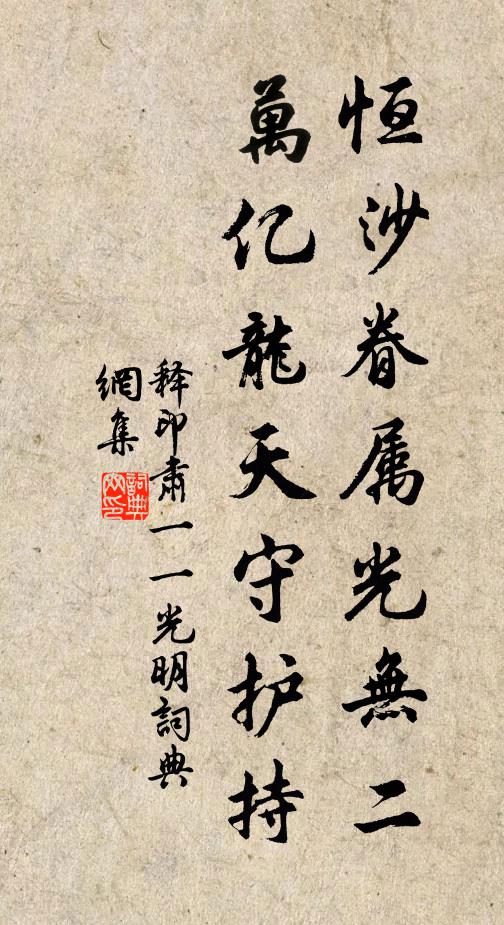 恒沙眷属光無二
萬亿龍天守护持
释印肃一一光明詞典
網集
詞典網印